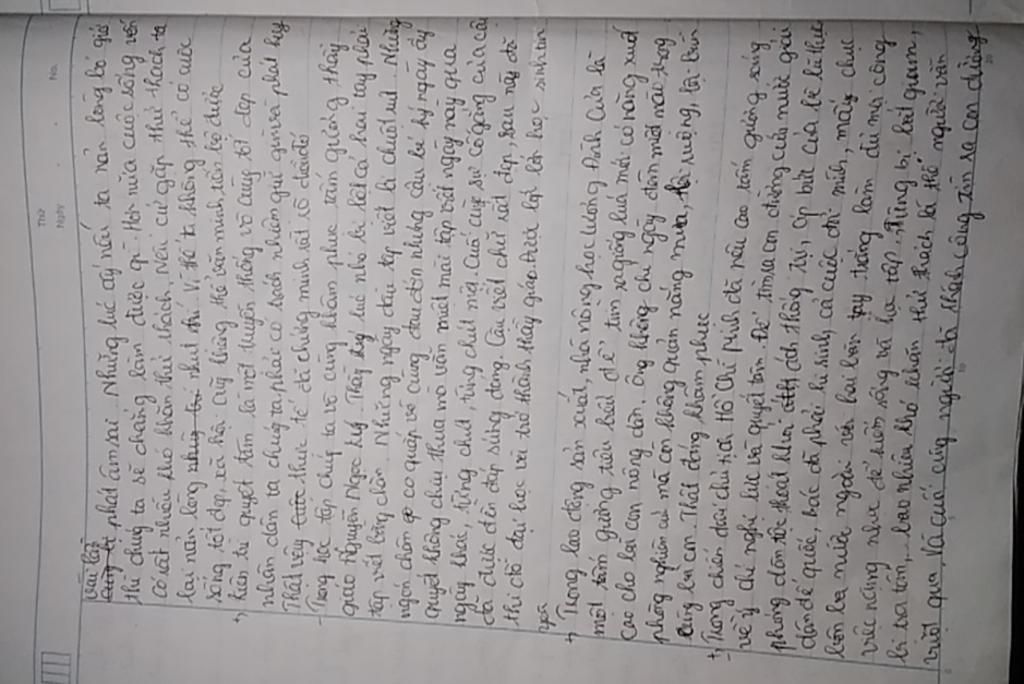 Thứ
Ngày
No.
vấp phát âm sai. Những lúc ấy nếu ta nản lòng bỏ giở
thì chúng ta sẽ chẳng làm được gì. Hơn nữa cuộc sống vốn
có rất nhiều khó khăn thử thách, Nếu cứ gặp thử thách ta
lại nản lòng nhụt chí. Vì thế ta không thể có cuộc
sống tốt đẹp, xã hội ấy không thể văn minh, tiến bộ được
+, Kiên trì quyết tâm là một truyền thống vô cùng tốt đẹp của
nhân dân ta chúng ta phải có trách nhiệm giữ gìn và phát huy
Thật vậy thực tế đã chứng minh rất rõ điều đó
- Trong học tập chúng ta vô cùng khâm phục tấm gương thầy
giáo Nguyễn Ngọc Ký. Thầy lúc nhỏ bị liệt cả hai tay phải
tập viết bằng chân. Những ngày đầu tập viết bị chuột rút. Những
ngón chân co quắp vô cùng đau đớn nhưng cậu bé Ký ngày ấy
quyết không chịu thua nó vẫn miệt mài tập viết ngày này qua
ngày khác, từng chút, từng chút một. Cuối cùng sự cố gắng của cậu
đã được đền đáp xứng đáng. Cậu viết chữ rất đẹp, sau này đỗ
thi đỗ đại học và trở thành thầy giáo đứng lớp dạy học sinh thân
yêu
+, Trong lao động sản xuất, nhà nông học Lương Định Của là
một tấm gương tiêu biểu để tìm ra giống lúa mới có năng xuất
cao cho bà con nông dân. Ông không chỉ ngày đêm miệt mài trong
phòng nghiên cứu mà còn không quản nắng mưa, lội ruộng, lội bùn
cùng bà con. Thật đáng khâm phục
+, Trong chiến đấu chủ tịch Hồ Chí Minh đã nêu cao tấm gương sáng
về ý chí nghị lực và quyết tâm. Để tìm ra con đường cứu nước giải
phóng dân tộc thoát khỏi ách thống trị, áp bức của bè lũ thực
dân đế quốc, bác đã phải hi sinh, cả cuộc đời mình, mấy chục
bôn ba nước ngoài với hai bàn tay trắng làm đủ mọi công
việc nặng nhọc để kiếm sống và học tập. Từng bị bắt giam,
bị tra tấn, bao nhiêu khó khăn thử thách là thế người vẫn
vượt qua, và cuối cùng người đã thành công tìm ra con đường